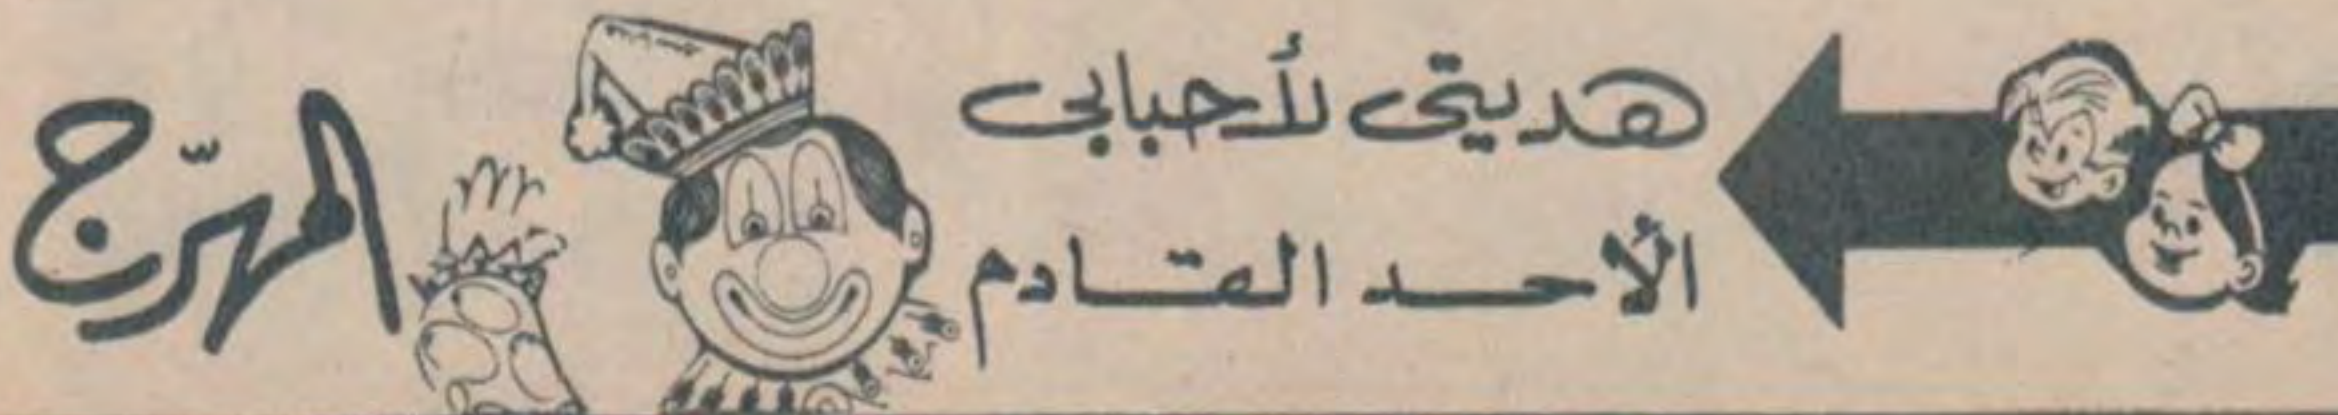 هديتى لأحبابى
الأحد القادم
المهرّج